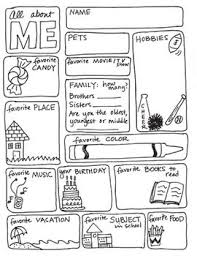 All about
ME
NAME
PETS
HOBBIES
favorite CANDY
favorite MOVIE/TV
FAMILY: how many?
Brothers
Sisters
Are you the oldest,
youngest or middle
CHEER
favorite PLACE
favorite COLOR
favorite MUSIC
your BIRTHDAY
favorite BOOKS to read
favorite VACATION
favorite SUBJECT in school
favorite FOOD